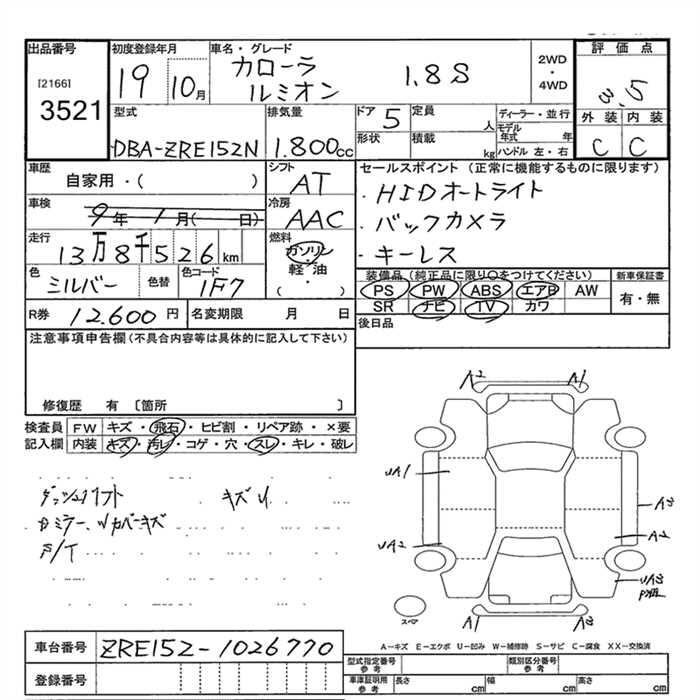 出品番号
[2166]
3521
初度登録年月
19 10月
車名・グレード
カローラ
ルミオン
1.8S
2WD
・
4WD
評価点
3.5
外装 内装
C C
型式
DBA-ZRE152N
排気量
1.800cc
ドア 5
形状
定員 人
積載 kg
ディーラー・並行
モデル年式 年
ハンドル 左・右
車歴
自家用・( )
シフト
AT
車検
9年 1月( 日)
冷房
AAC
走行
13万8千526km
燃料
ガソリン
軽・油
( )
色
シルバー
色替
色コード
1F7
セールスポイント(正常に機能するものに限ります)
・HIDオートライト
・バックカメラ
・キーレス
装備品(純正品に限り○をつけてください)
PS PW ABS エアB AW
SR ナビ TV カワ
新車保証書
有・無
R券 12.600円
名変期限 月 日
後日品
注意事項申告欄(不具合内容等は具体的に記入して下さい)
修復歴 有 〔箇所 〕
検査員
記入欄
FW キズ・飛石・ヒビ割・リペア跡・×要
内装 キズ・汚レ・コゲ・穴・スレ・キレ・破レ
キズ
キズ
F/T
A2 A1
UA1
UA2
A3
A2
UA3
A1 A2
スペア
A-キズ E-エクボ U-凹み W-補修跡 S-サビ C-腐食 XX-交換済
車台番号 ZRE152-1026770
登録番号
型式指定番号
参考
類別区分番号
参考
車庫証明用
参考
長さ cm 幅 cm 高さ cm